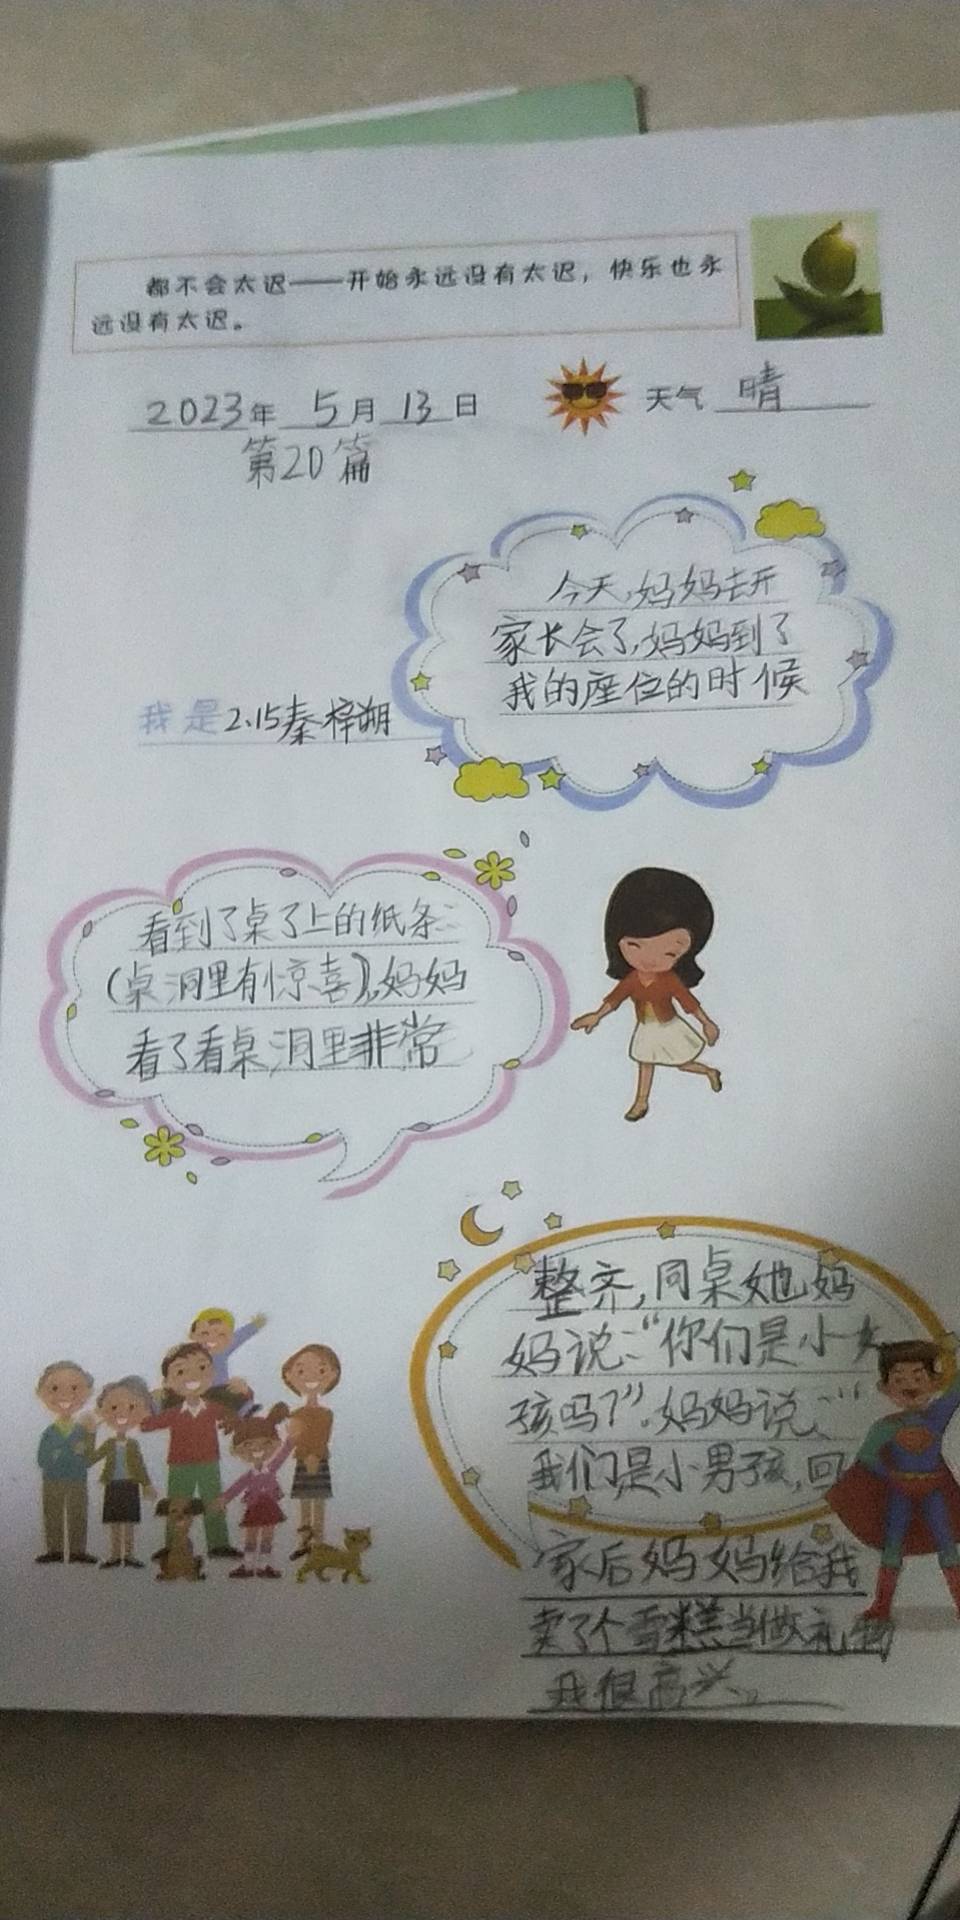 都不会太迟——开始永远没有太迟，快乐也永
远没有太迟。
2023年 5月13日 天气 晴
第20篇
今天,妈妈去开
家长会了,妈妈到了
我的座位的时候
我是2.15秦梓翊
看到了桌了上的纸条:
(桌洞里有惊喜),妈妈
看了看桌洞里非常
整齐,同桌她妈
妈说:“你们是小女
孩吗?”.妈妈说:“
我们是小男孩,回
家后妈妈给我
卖了个雪糕当做礼物
我很高兴。